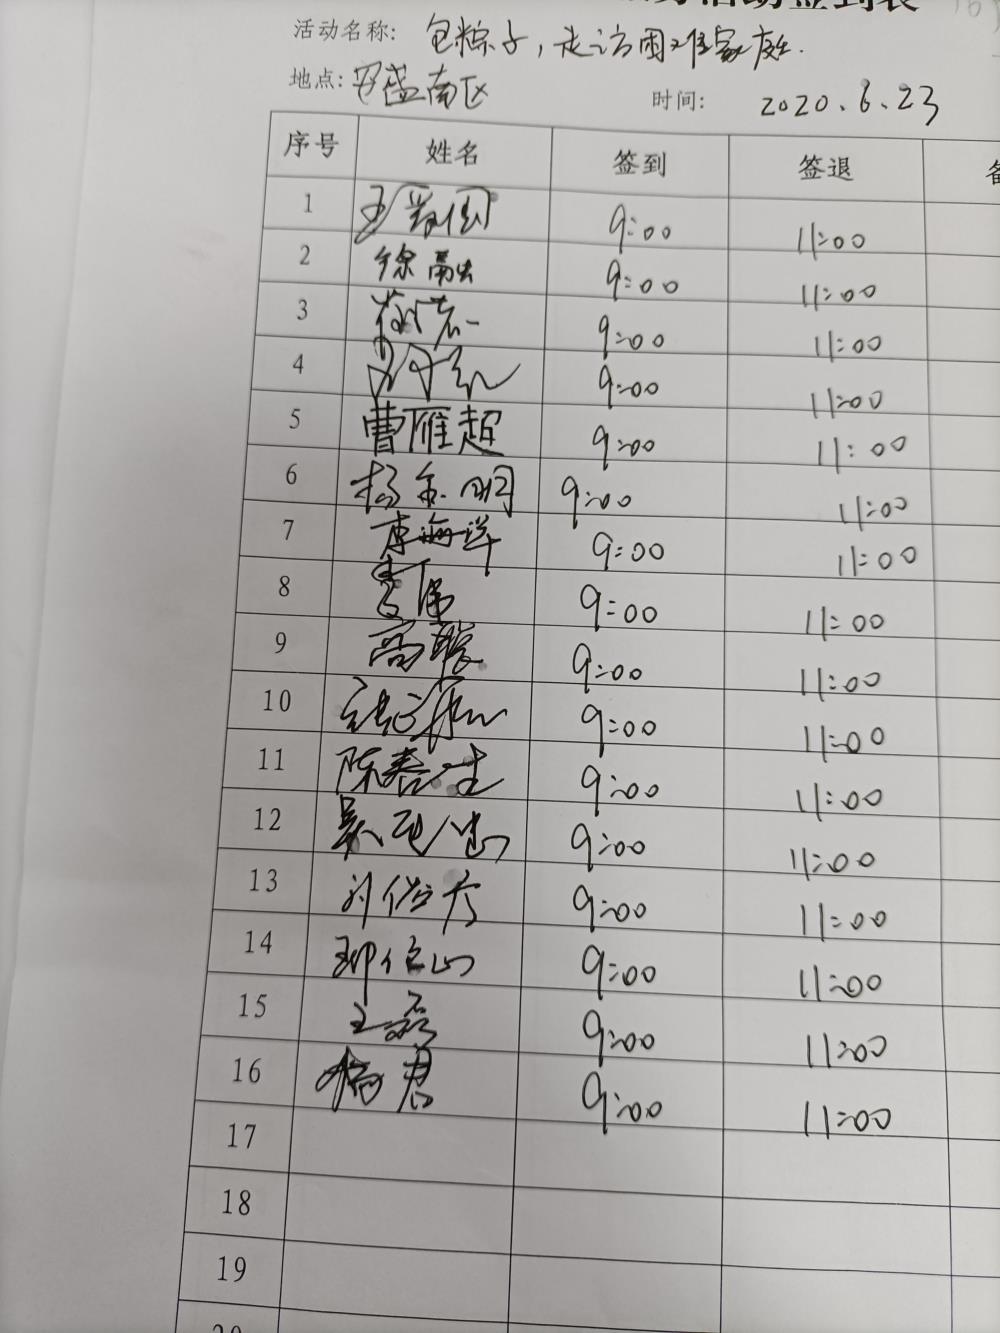 活动签到表
活动名称: 包粽子,走访困难家庭.
地点: 安盛南区 时间: 2020.6.23
序号 姓名 签到 签退 备
1 9:00 11:00
2 徐融 9:00 11:00
3 9:00 11:00
4 9:00 11:00
5 曹雁超 9:00 11:00
6 杨金明 9:00 11:00
7 李海洋 9:00 11:00
8 9:00 11:00
9 高 9:00 11:00
10 9:00 11:00
11 陈春生 9:00 11:00
12 吴 9:00 11:00
13 刘俊彦 9:00 11:00
14 9:00 11:00
15 王磊 9:00 11:00
16 杨君 9:00 11:00
17
18
19
20